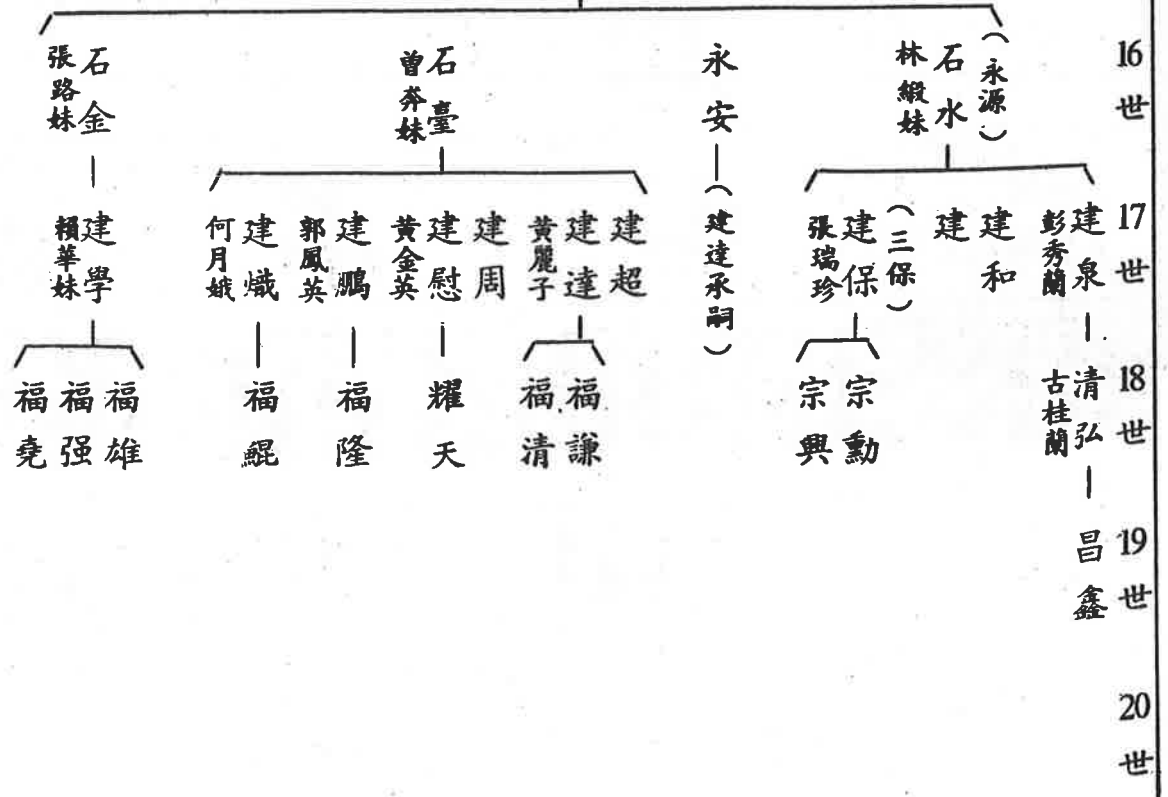 16世
(永源)
石水
林緞妹
永安
石臺
曾奔妹
石金
張路妹
17世
建泉
彭秀蘭
建和
建
(三保)
建保
張瑞珍
(建達承嗣)
建超
建達
黃麗子
建周
建慰
黃金英
建鵬
郭鳳英
建熾
何月娥
建學
賴華妹
18世
清弘
古桂蘭
宗勳
宗興
福謙
福清
耀天
福隆
福鯤
福雄
福强
福堯
19世
昌鑫
20世